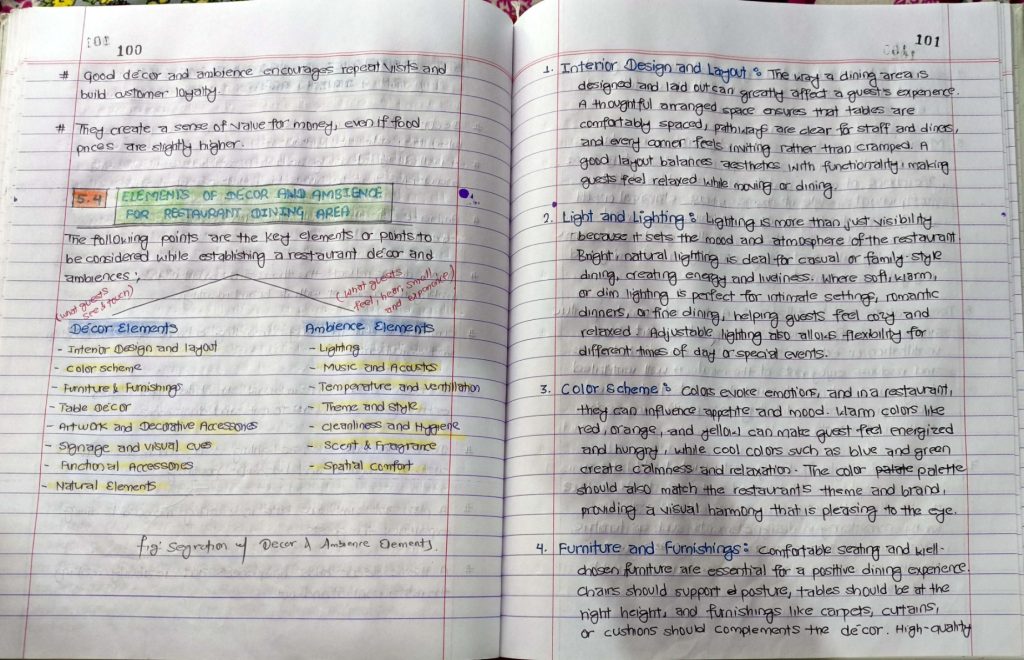 100
# Good décor and ambience encourages repeat visits and
build customer loyalty.
# They create a sense of value for money, even if food
prices are slightly higher.
5.4 ELEMENTS OF DECOR AND AMBIENCE
FOR RESTAURANT DINING AREA
The following points are the key elements or points to
be considered while establishing a restaurant décor and
ambiences:
(what guests
see & touch)
(what guests
feel, hear, small,
and experience)
Décor Elements
- Interior Design and layout
- Color scheme
- Furniture & Furnishings
- Table Décor
- Artwork and Decorative Accessories
- Signage and visual cues
- Functional Accessories
- Natural Elements
Ambience Elements
- Lighting
- Music and Acoustics
- Temperature and ventillation
- Theme and style
- Cleanliness and Hygiene
- Scent & Fragrance
- Spatial comfort
fig: Segrection of Decor & Ambience Elements.
101
1. Interior Design and Layout: The way a dining area is
designed and laid out can greatly affect a guest's experience.
A thoughtful arranged space ensures that tables are
comfortably spaced, pathways are clear for staff and dines,
and every corner feels inviting rather than cramped. A
good layout balances aesthetics with functionality, making
guests feel relaxed while moving or dining.
2. Light and Lighting: Lighting is more than just visibility
because it sets the mood and atmosphere of the restaurant.
Bright, natural lighting is deal for casual or family-style
dining, creating energy and liveliness. Where soft, warm,
or dim lighting is perfect for intimate settings, romantic
dinners, or fine dining, helping guests feel cozy and
relaxed. Adjustable, lighting also allows flexibility for
different times of day or special events.
3. Color Scheme: Colors evoke emotions, and in a restaurant,
they can influence appetite and mood. Warm colors like
red, orange, and yellow can make guest feel energized
and hungry, while cool colors such as blue and green
create calmness and relaxation. The color palette
should also match the restaurant's theme and brand,
providing a visual harmony that is pleasing to the eye.
4. Furniture and Furnishings: Comfortable seating and well-
chosen furniture are essential for a positive dining experience.
Chairs should support posture, tables should be at the
right height, and furnishings like carpets, curtains,
or cushions should complements the décor. High-quality